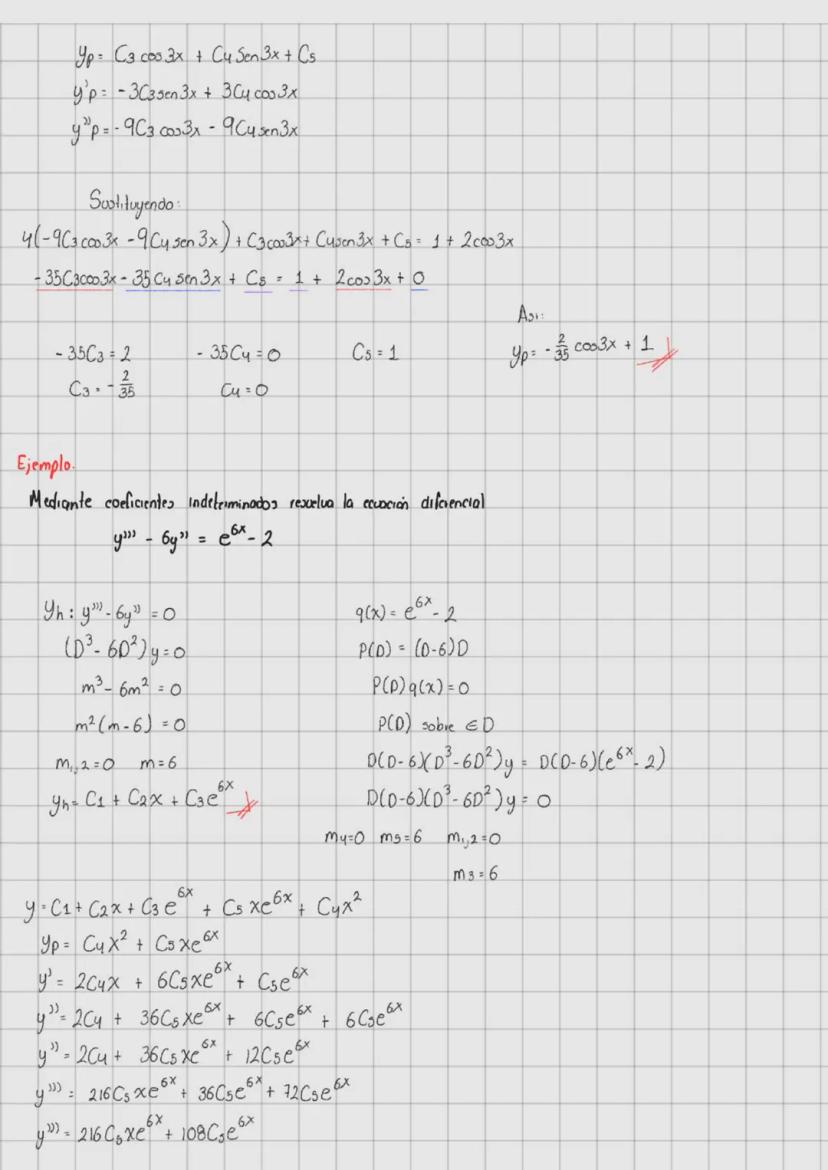 yp = C3 cos 3x + C4 Sen 3x + C5
y'p = -3C3 sen 3x + 3C4 cos 3x
y''p = -9C3 cos 3x - 9C4 sen 3x
Sustituyendo:
4(-9C3 cos 3x - 9C4 sen 3x) + C3 cos 3x + C4 sen 3x + C5 = 1 + 2 cos 3x
-35C3 cos 3x - 35C4 sen 3x + C5 = 1 + 2 cos 3x + 0
Asi:
-35C3 = 2 -35C4 = 0 C5 = 1 yp = -2/35 cos 3x + 1
C3 = -2/35 C4 = 0
Ejemplo.
Mediante coeficientes indeterminados resuelva la ecuación diferencial
y''' - 6y'' = e^6x - 2
yh: y''' - 6y'' = 0 q(x) = e^6x - 2
(D^3 - 6D^2)y = 0 P(D) = (D-6)D
m^3 - 6m^2 = 0 P(D)q(x) = 0
m^2(m-6) = 0 P(D) sobre ∈D
m1,2 = 0 m = 6 D(D-6)(D^3-6D^2)y = D(D-6)(e^6x - 2)
yh = C1 + C2x + C3e^6x D(D-6)(D^3-6D^2)y = 0
m4=0 m5=6 m1,2=0
m3=6
y = C1 + C2x + C3e^6x + C5xe^6x + C4x^2
yp = C4x^2 + C5xe^6x
y' = 2C4x + 6C5xe^6x + C5e^6x
y'' = 2C4 + 36C5xe^6x + 6C5e^6x + 6C5e^6x
y'' = 2C4 + 36C5xe^6x + 12C5e^6x
y''' = 216C5xe^6x + 36C5e^6x + 72C5e^6x
y''' = 216C5xe^6x + 108C5e^6x